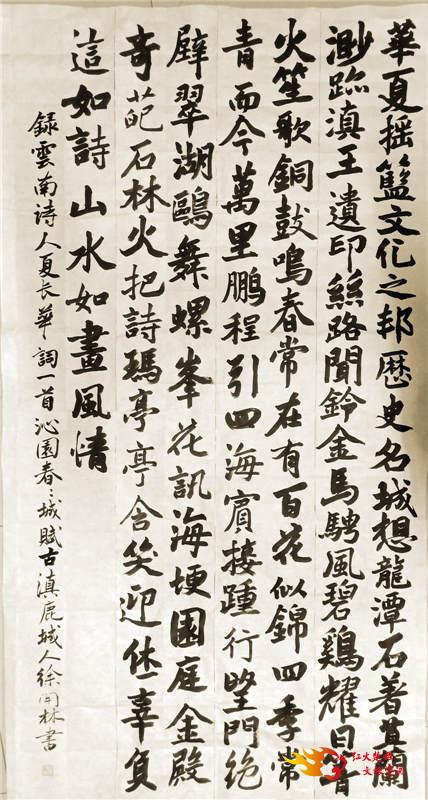 華夏摇籃文化之邦歷史名城想龍潭石著苴蘭
渺跡滇王遺印絲路聞鈴金馬騁風碧鷄耀日篝
火笙歌銅鼓鳴春常在有百花似錦四季常
青而今萬里鵬程引四海賓接踵行望門絶
壁翠湖鷗舞螺峯花訊海埂園庭金殿
奇葩石林火把詩瑪亭亭含笑迎休辜負
這如詩山水如畫風情
録雲南詩人夏長華詞一首沁園春:城賦古滇鹿城人徐開林書
红火楚雄